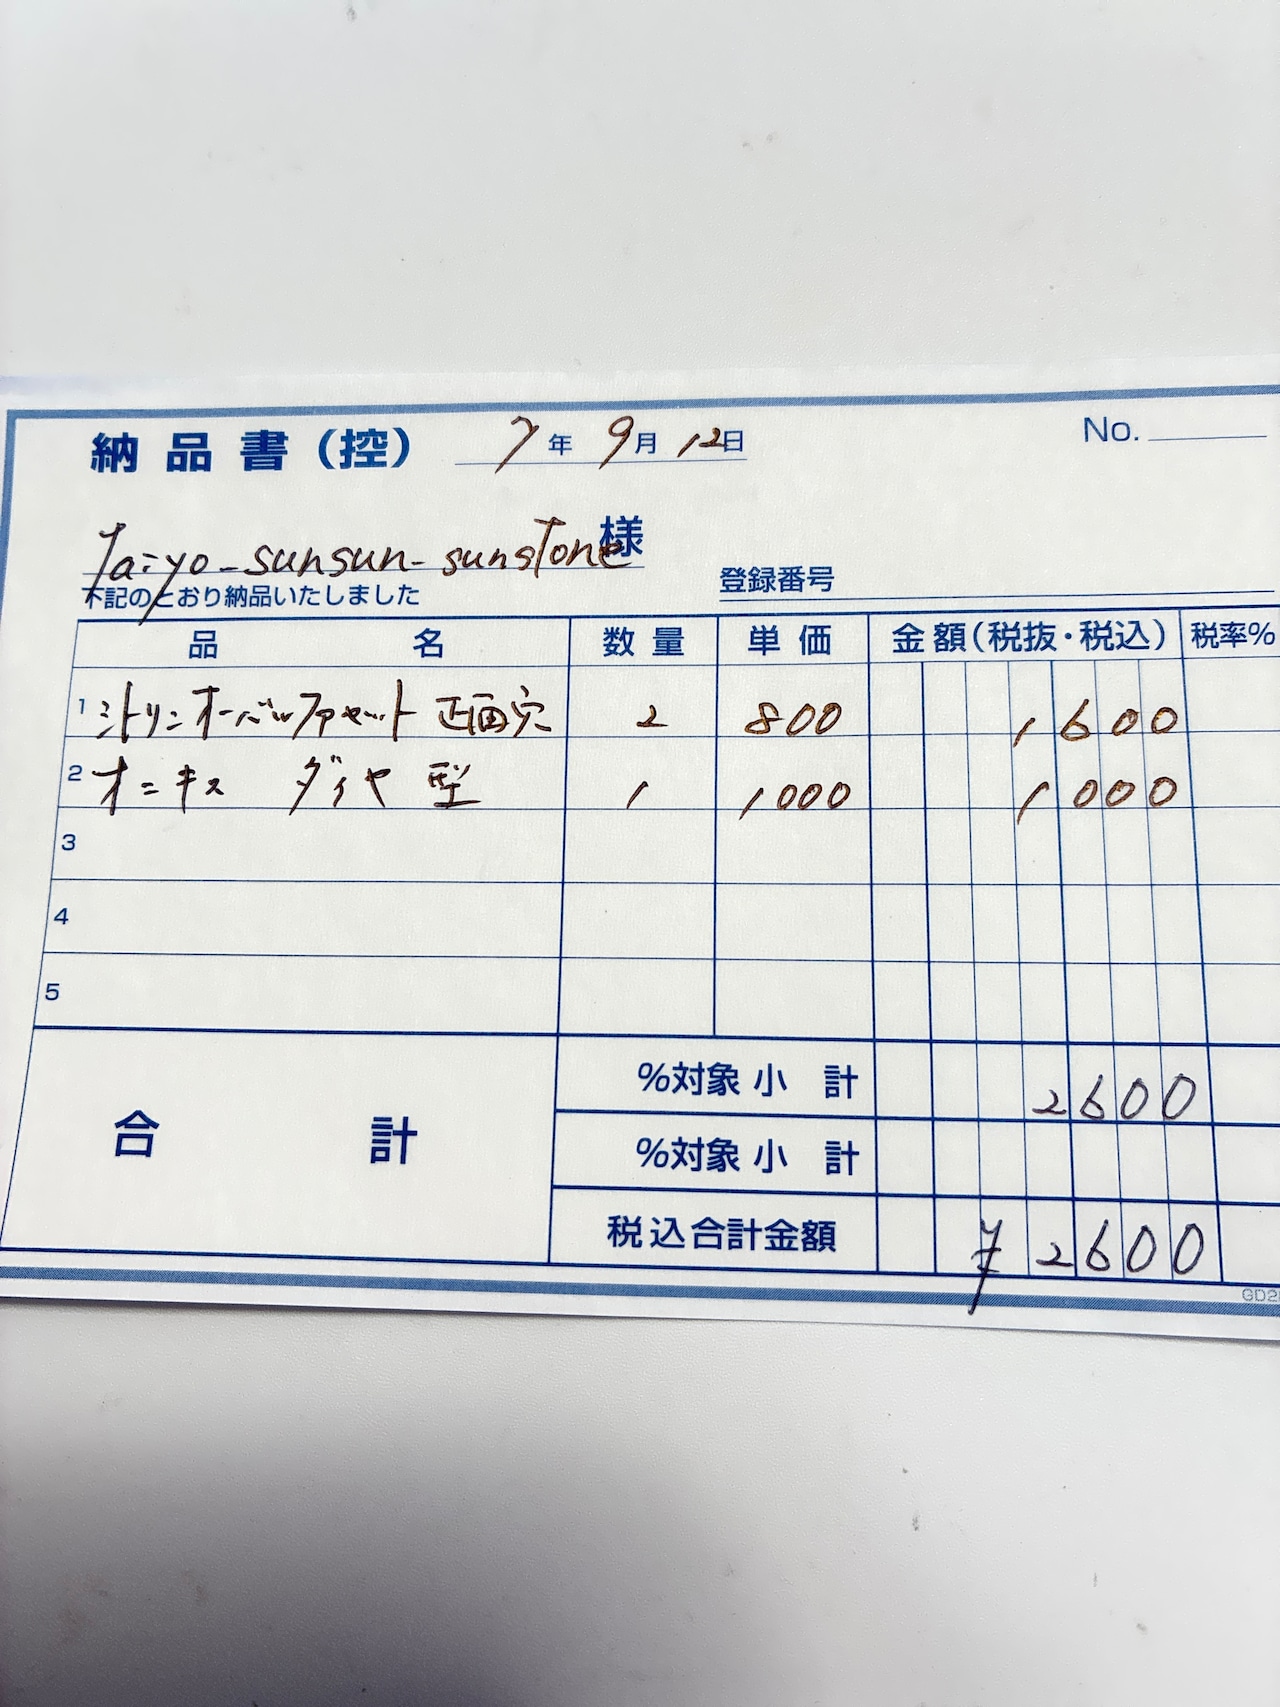 納品書(控) 7年9月12日 No.
Taiyo-sunsun-sunstone様
下記のとおり納品いたしました 登録番号
品名 数量 単価 金額(税抜・税込) 税率%
1 シトリンオーバルファセット 正面穴 2 800 1600
2 オニキス ダイヤ型 1 1000 1000
3
4
5
合計 %対象小計 2600
%対象小計
税込合計金額 ¥2600